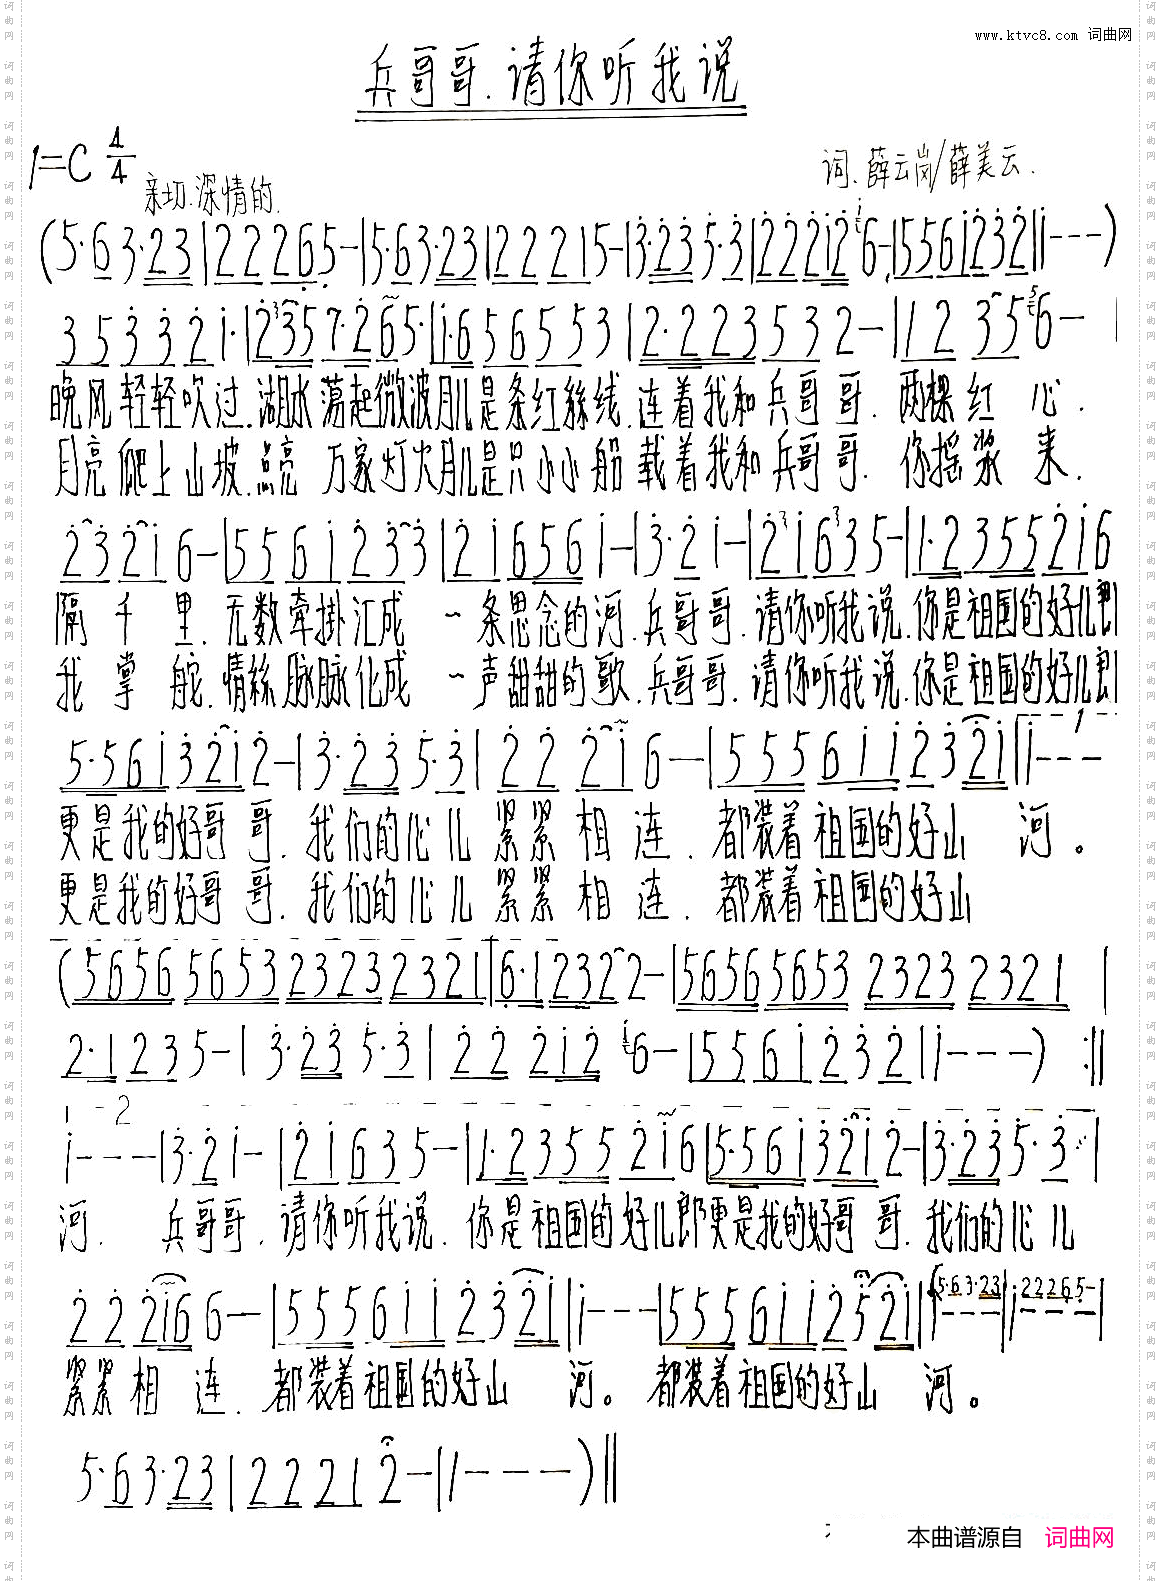 www.ktvc8.com 词曲网
兵哥哥.请你听我说
1=C 4/4
亲切.深情的.
词.薛云岗/薛美云.
(5·6 3·23|2 2 2 6 5-|5·6 3·23|2 2 2 1 5-|3·23 5·3|2 2 2 1 2 6-|5 5 6 1 2 3 2|1---)
3 5 3 3 2 1·|2 3 5 7·2 6 5·|1·6 5 6 5 5 3|2·2 2 3 5 3 2-|1 2 3 5 6-|
晚风轻轻吹过.湖水荡起微波月儿是条红丝线.连着我和兵哥哥.两棵红心.
月亮爬上山坡.点亮万家灯火月儿是只小小船载着我和兵哥哥.你摇浆来.
2 3 2 1 6-|5 5 6 1 2 3 3|2 1 6 5 6 1-|3·2 1-|2 1 6 3 5-|1·2 3 5 5 2 1 6
隔千里.无数牵掛汇成一条思念的河.兵哥哥.请你听我说.你是祖国的好儿郎
我掌舵.情丝脉脉化成一声甜甜的歌.兵哥哥.请你听我说.你是祖国的好儿郎
5·5 6 1 3 2 1 2-|3·2 3 5·3|2 2 2 1 6-|5 5 5 6 1 1 2 3 2 1|1---
更是我的好哥哥.我们的心儿紧紧相连.都装着祖国的好山河。
更是我的好哥哥.我们的心儿紧紧相连.都装着祖国的好山
(5656 5653 2323 2321|6·1 2 3 2 2-|5656 5653 2323 2321|
2·1 2 3 5-|3·23 5·3|2 2 2 1 2 6-|5 5 6 1 2 3 2|1---):||
1---|3·2 1-|2 1 6 3 5-|1·2 3 5 5 2 1 6|5·5 6 1 3 2 1 2-|3·2 3 5·3|
河.兵哥哥.请你听我说.你是祖国的好儿郎更是我的好哥哥.我们的心儿
2 2 2 1 6 6-|5 5 5 6 1 1 2 3 2 1|1---|5 5 5 6 1 1 2 5 2 1|(5·6 3·23|1 2 2 2 6 5-|
紧紧相连.都装着祖国的好山河。都装着祖国的好山河。
5·6 3·23|2 2 2 1 2-|1---)||
本曲谱源自 词曲网